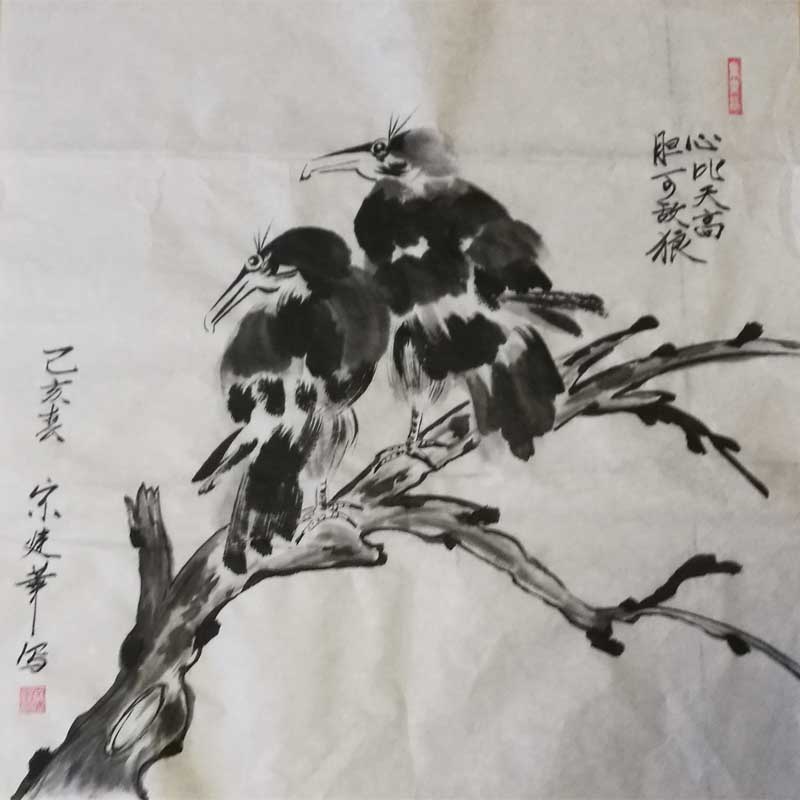 心比天高
胆可敌狼
己亥春
宗建华写